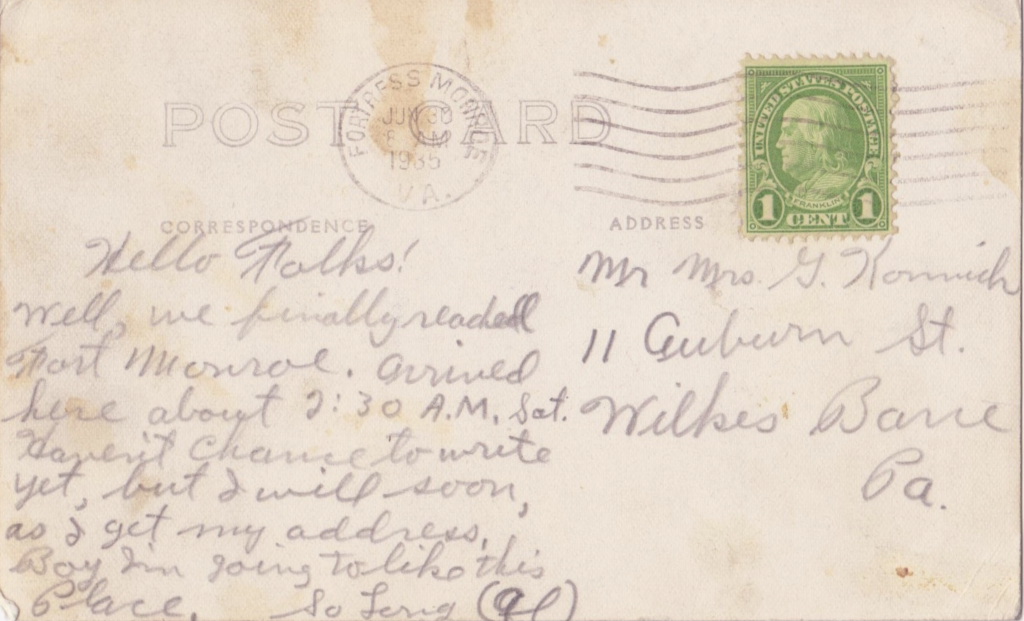 POST CARD
FORTRESS MONROE
JUN 30
M
1935
VA.
UNITED STATES POSTAGE
FRANKLIN
1 CENT 1
CORRESPONDENCE
ADDRESS
Hello Folks!
Well, we finally reached
Fort Monroe. Arrived
here about 2:30 A.M. Sat.
Haven't chance to write
yet, but I will soon,
as I get my address.
Boy I'm going to like this
Place. So Long (Al)
Mr Mrs. G.
11 Auburn St.
Wilkes Barre
Pa.